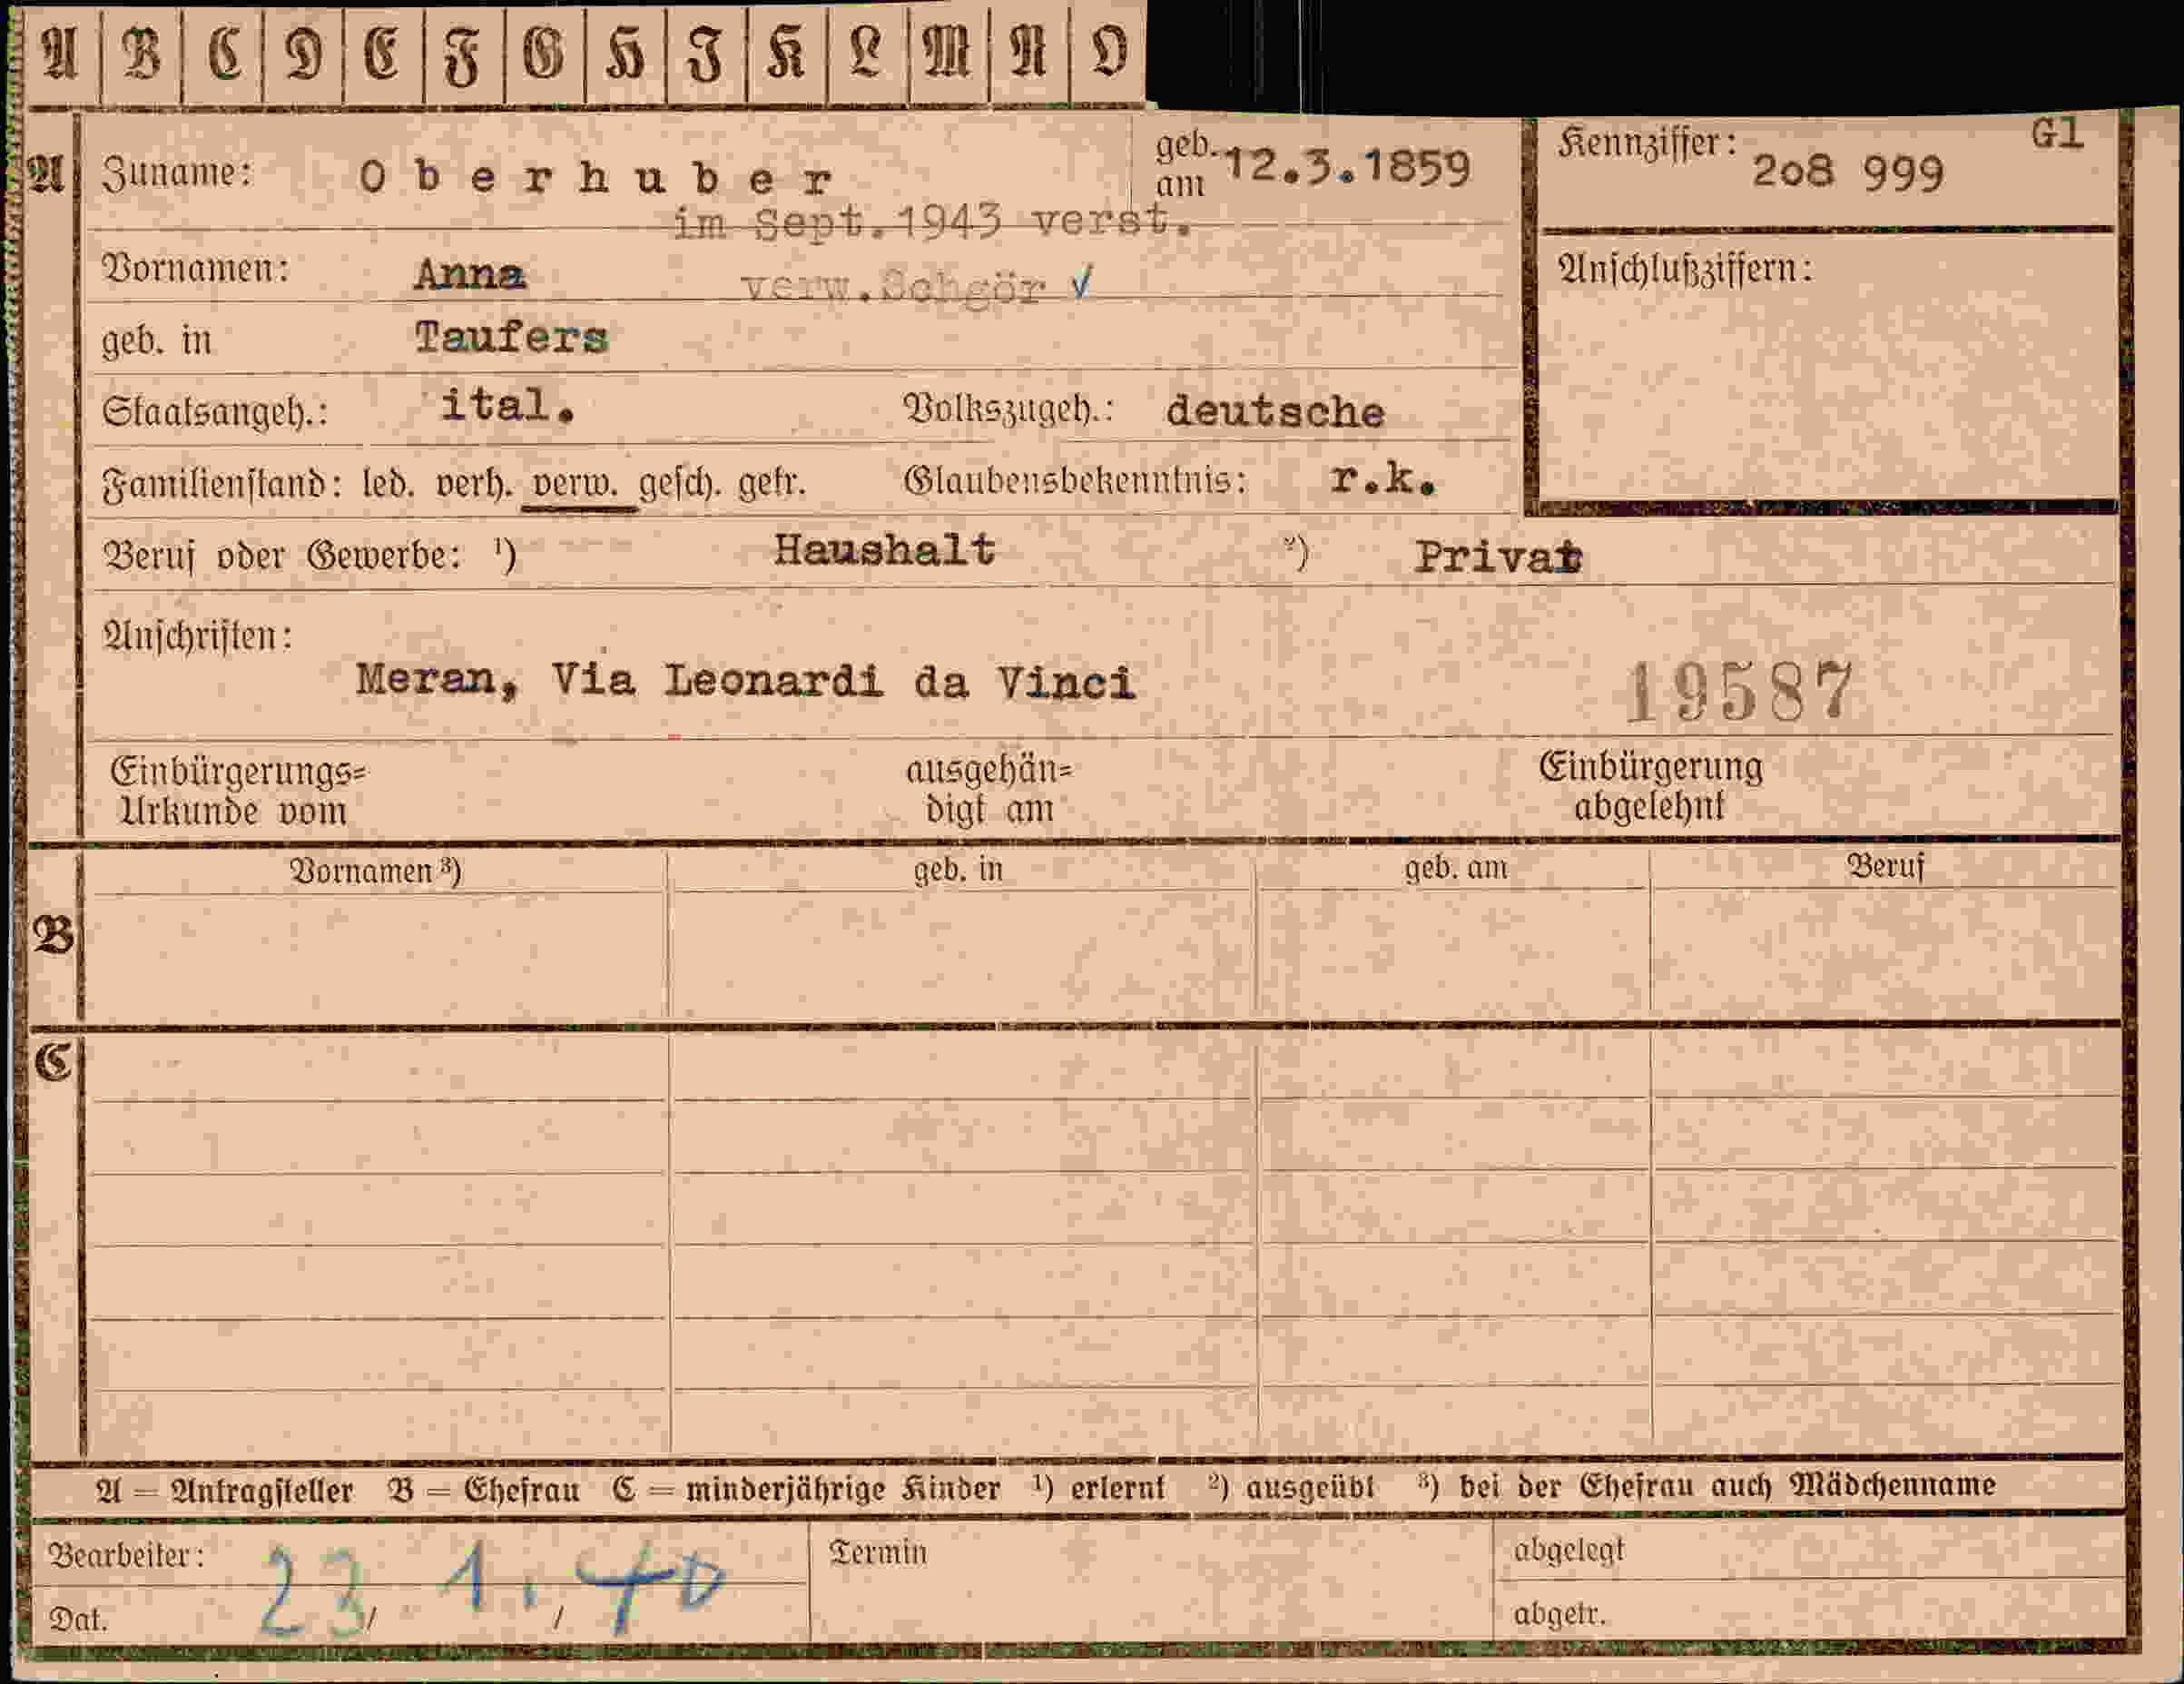 A B C D E F G H J K L M N O
A Zuname: Oberhuber geb. am 12.3.1859 Kennziffer: 2o8 999 Gl
im Sept.1943 verst.
Vornamen: Anna verw.Schgör √ Anschlußziffern:
geb. in Taufers
Staatsangeh.: ital. Volkszugeh.: deutsche
Familienstand: led. verh. verw. gesch. getr. Glaubensbekenntnis: r.k.
Beruf oder Gewerbe: ¹) Haushalt ²) Privat
Anschriften:
Meran, Via Leonardi da Vinci 19587
Einbürgerungs= ausgehän= Einbürgerung
Urkunde vom digt am abgelehnt
Vornamen ³) geb. in geb. am Beruf
B
C
A = Antragsteller B = Ehefrau C = minderjährige Kinder ¹) erlernt ²) ausgeübt ³) bei der Ehefrau auch Mädchenname
Bearbeiter: Termin abgelegt
Dat. 23/ 1./ 40 abgetr.